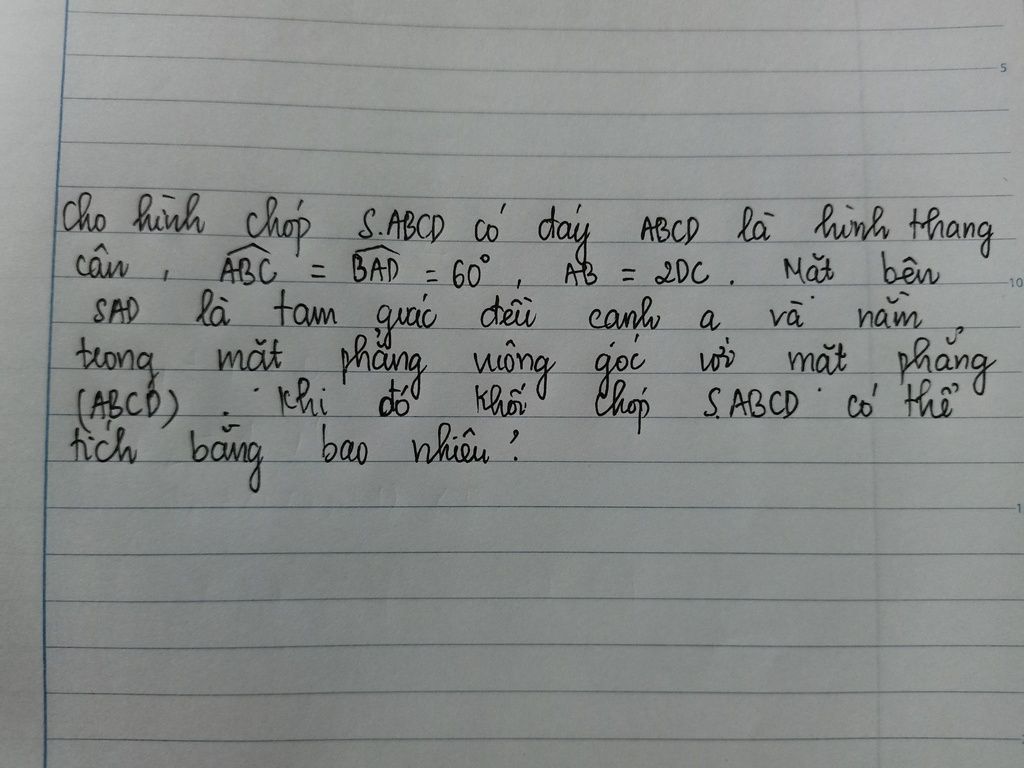 Cho hình chóp S.ABCD có đáy ABCD là hình thang
cân, ABC = BAD = 60°, AB = 2DC. Mặt bên
SAD là tam giác đều cạnh a và nằm
trong mặt phẳng vuông góc với mặt phẳng
(ABCD). Khi đó khối chóp S.ABCD có thể
tích bằng bao nhiêu?
5
10
1